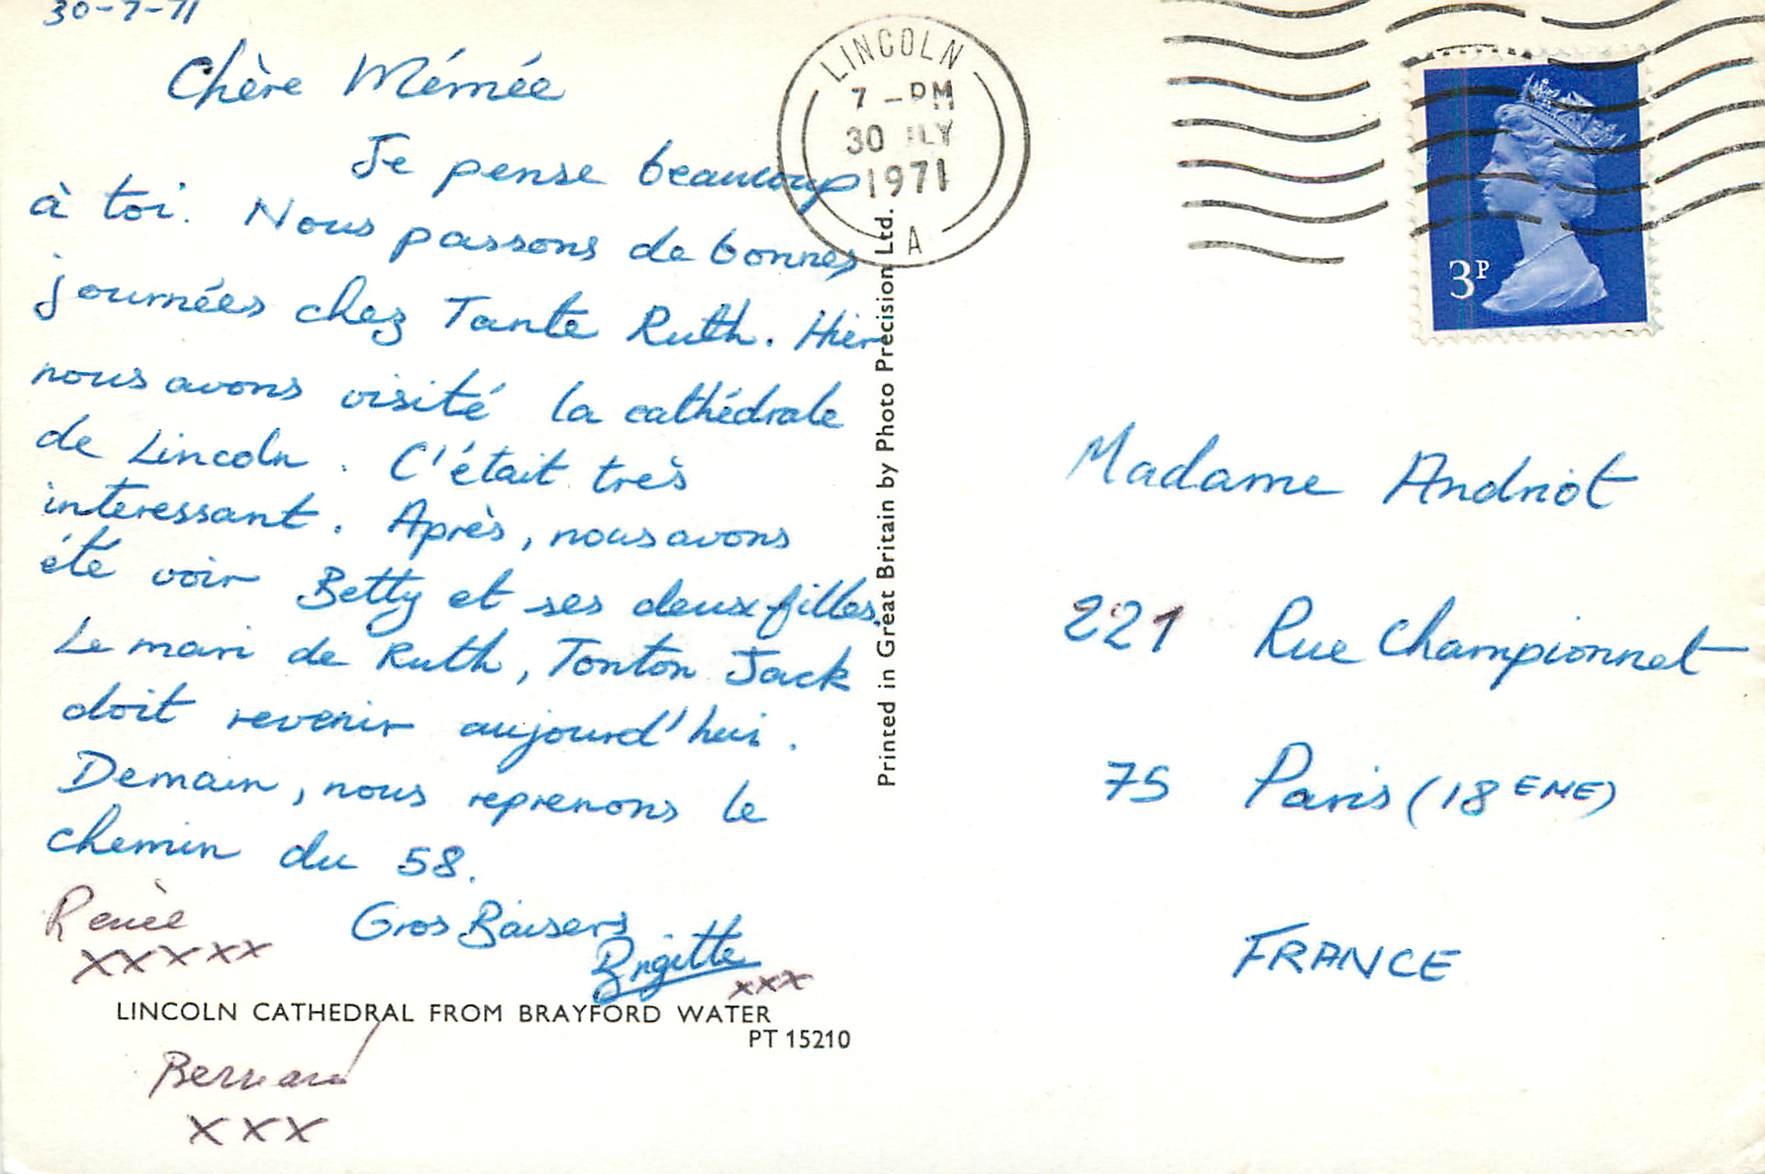 30-7-71
Chère Mémée
Je pense beaucoup
à toi. Nous passons de bonnes
journées chez Tante Ruth. Hier
nous avons visité la cathédrale
de Lincoln. C'était très
interessant. Après, nous avons
été voir Betty et ses deux filles.
Le mari de Ruth, Tonton Jack
doit revenir aujourd'hui.
Demain, nous reprenons le
chemin du 58.
Gros Baisers
Brigitte
xxx
Renée
xxxxx
LINCOLN CATHEDRAL FROM BRAYFORD WATER
PT 15210
Bernard
xxx
Printed in Great Britain by Photo Precision Ltd.
LINCOLN
7 - PM
30 JLY
1971
A
3P
Madame Andriot
221 Rue Championnet
75 Paris (18EME)
FRANCE